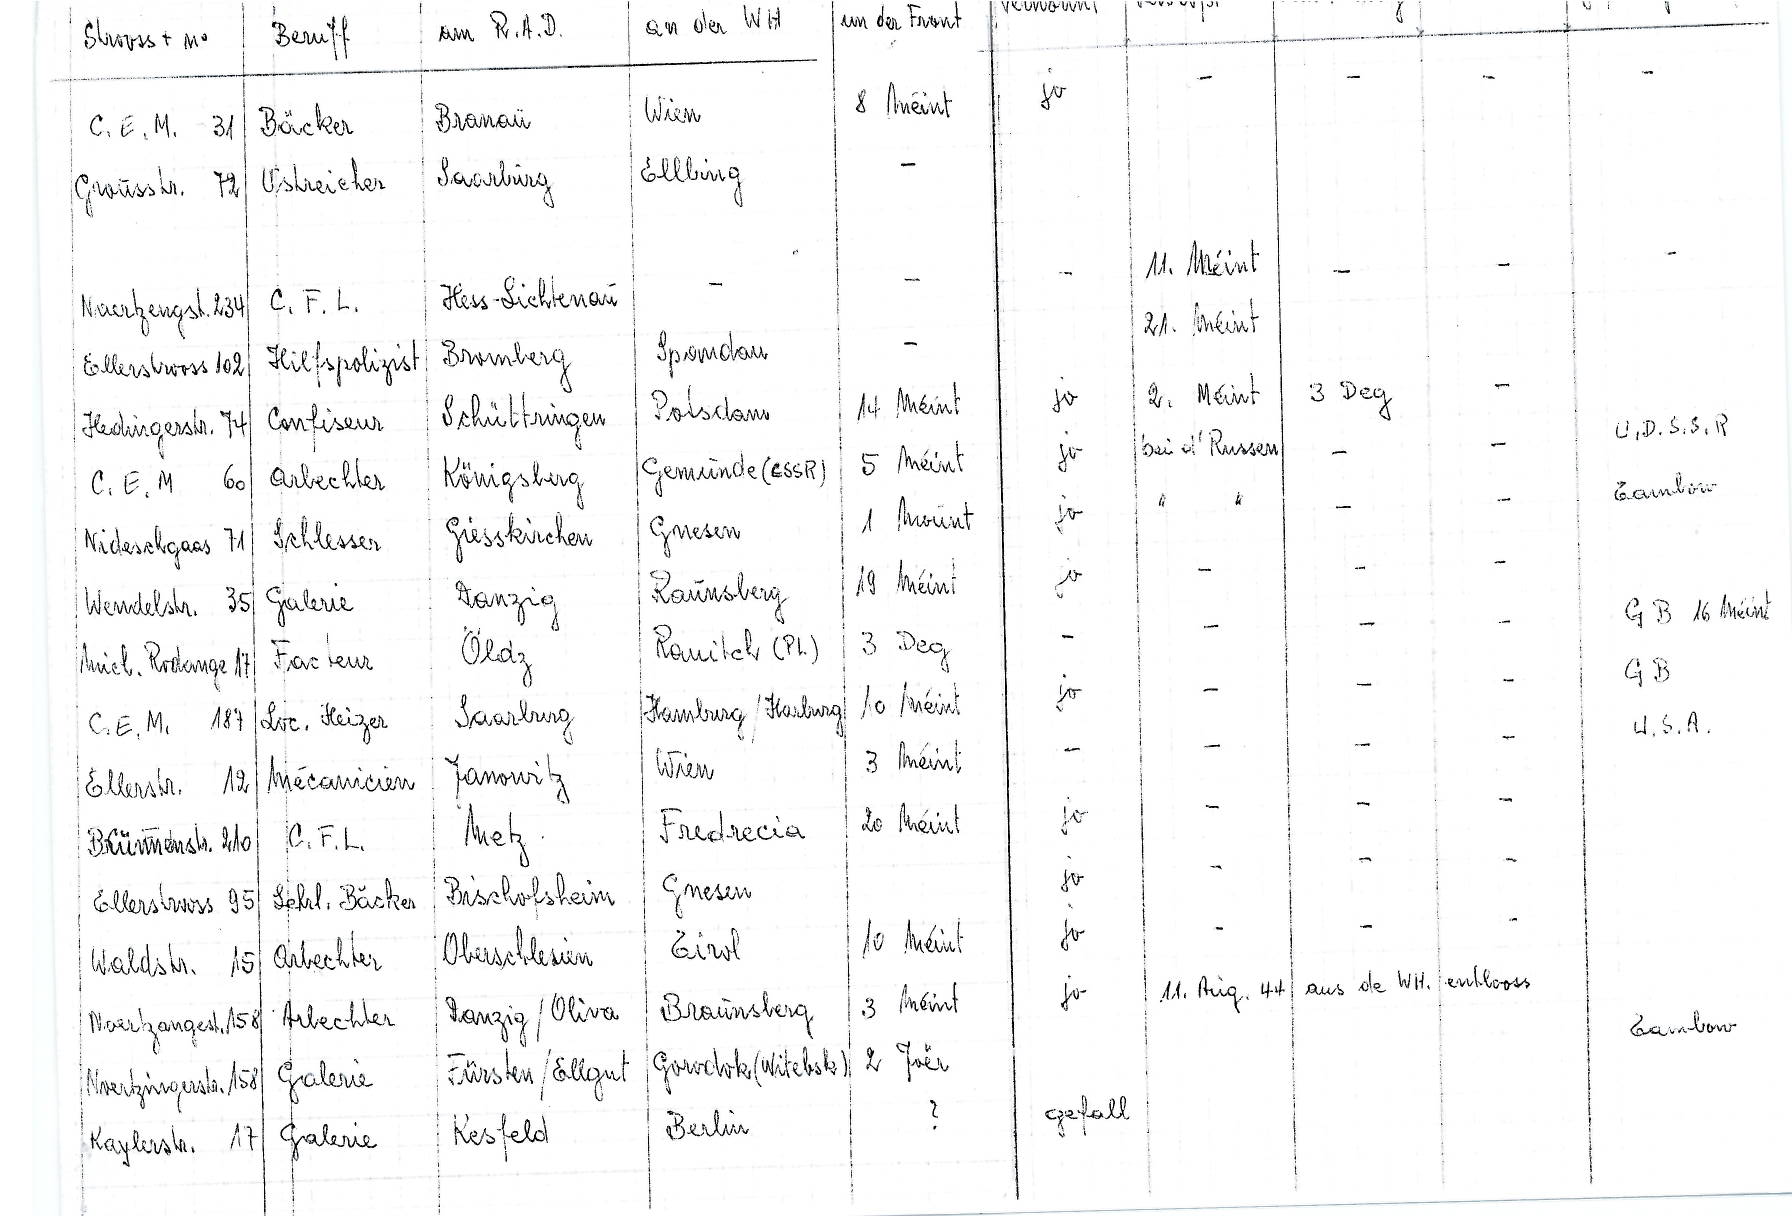 Strooss + No Beruff am R.A.D. an der WH un der Front
C.E.M. 31 Bäcker Branaŭ Wien 8 Méint jo - - - -
Groŭsstr. 72 Ustreicher Saarbŭrg Ellbing -
Nuertzengst. 234 C.F.L. Hess-Lichtenaŭ - - - 11. Méint - - -
Ellerstrooss 102 Hilfspolizist Bromberg Spandau - 21. Méint
Hedingerstr. 74 Confiseur Schüttringen Potsdam 14 Méint jo 2. Méint 3 Deg -
C.E.M 60 Arbechter Königsberg Gemünde (CSSR) 5 Méint jo bei d'Russen - - U.D.S.S.R
Nideschgaas 71 Schlesser Giesskirchen Gnesen 1 Moŭnt jo " " - - Tambow
Wendelstr. 35 Galerie Danzig Raŭnsberg 19 Méint jo - - -
Mich. Rodange 17 Facteur Öldz Rawitch (PL) 3 Deg - - - - G B 16 Méint
C.E.M. 187 Loc. Heizer Saarburg Hamburg/Harburg 10 Méint jo - - - G B
Ellerstr. 12 Mécanicien Janowitz Wien 3 Méint - - - - U.S.A.
210 C.F.L. Metz Fredrecia 20 Méint jo - - -
Ellerstrooss 95 Lehrl. Bäcker Bischofsheim Gnesen jo - - -
Waldstr. 15 Arbechter Oberschlesien Tirol 10 Méint jo - - -
Noertzangest. 158 Arbechter Danzig/Oliva Braŭnsberg 3 Méint jo 11. Aŭg. 44 aus de WH. entlooss
Noertzingerstr. 158 Galerie Fürsten/Ellgut Gorodok (Witebsk) 2 Joër Tambow
Kaylerstr. 17 Galerie Kesfeld Berlin ? gefall